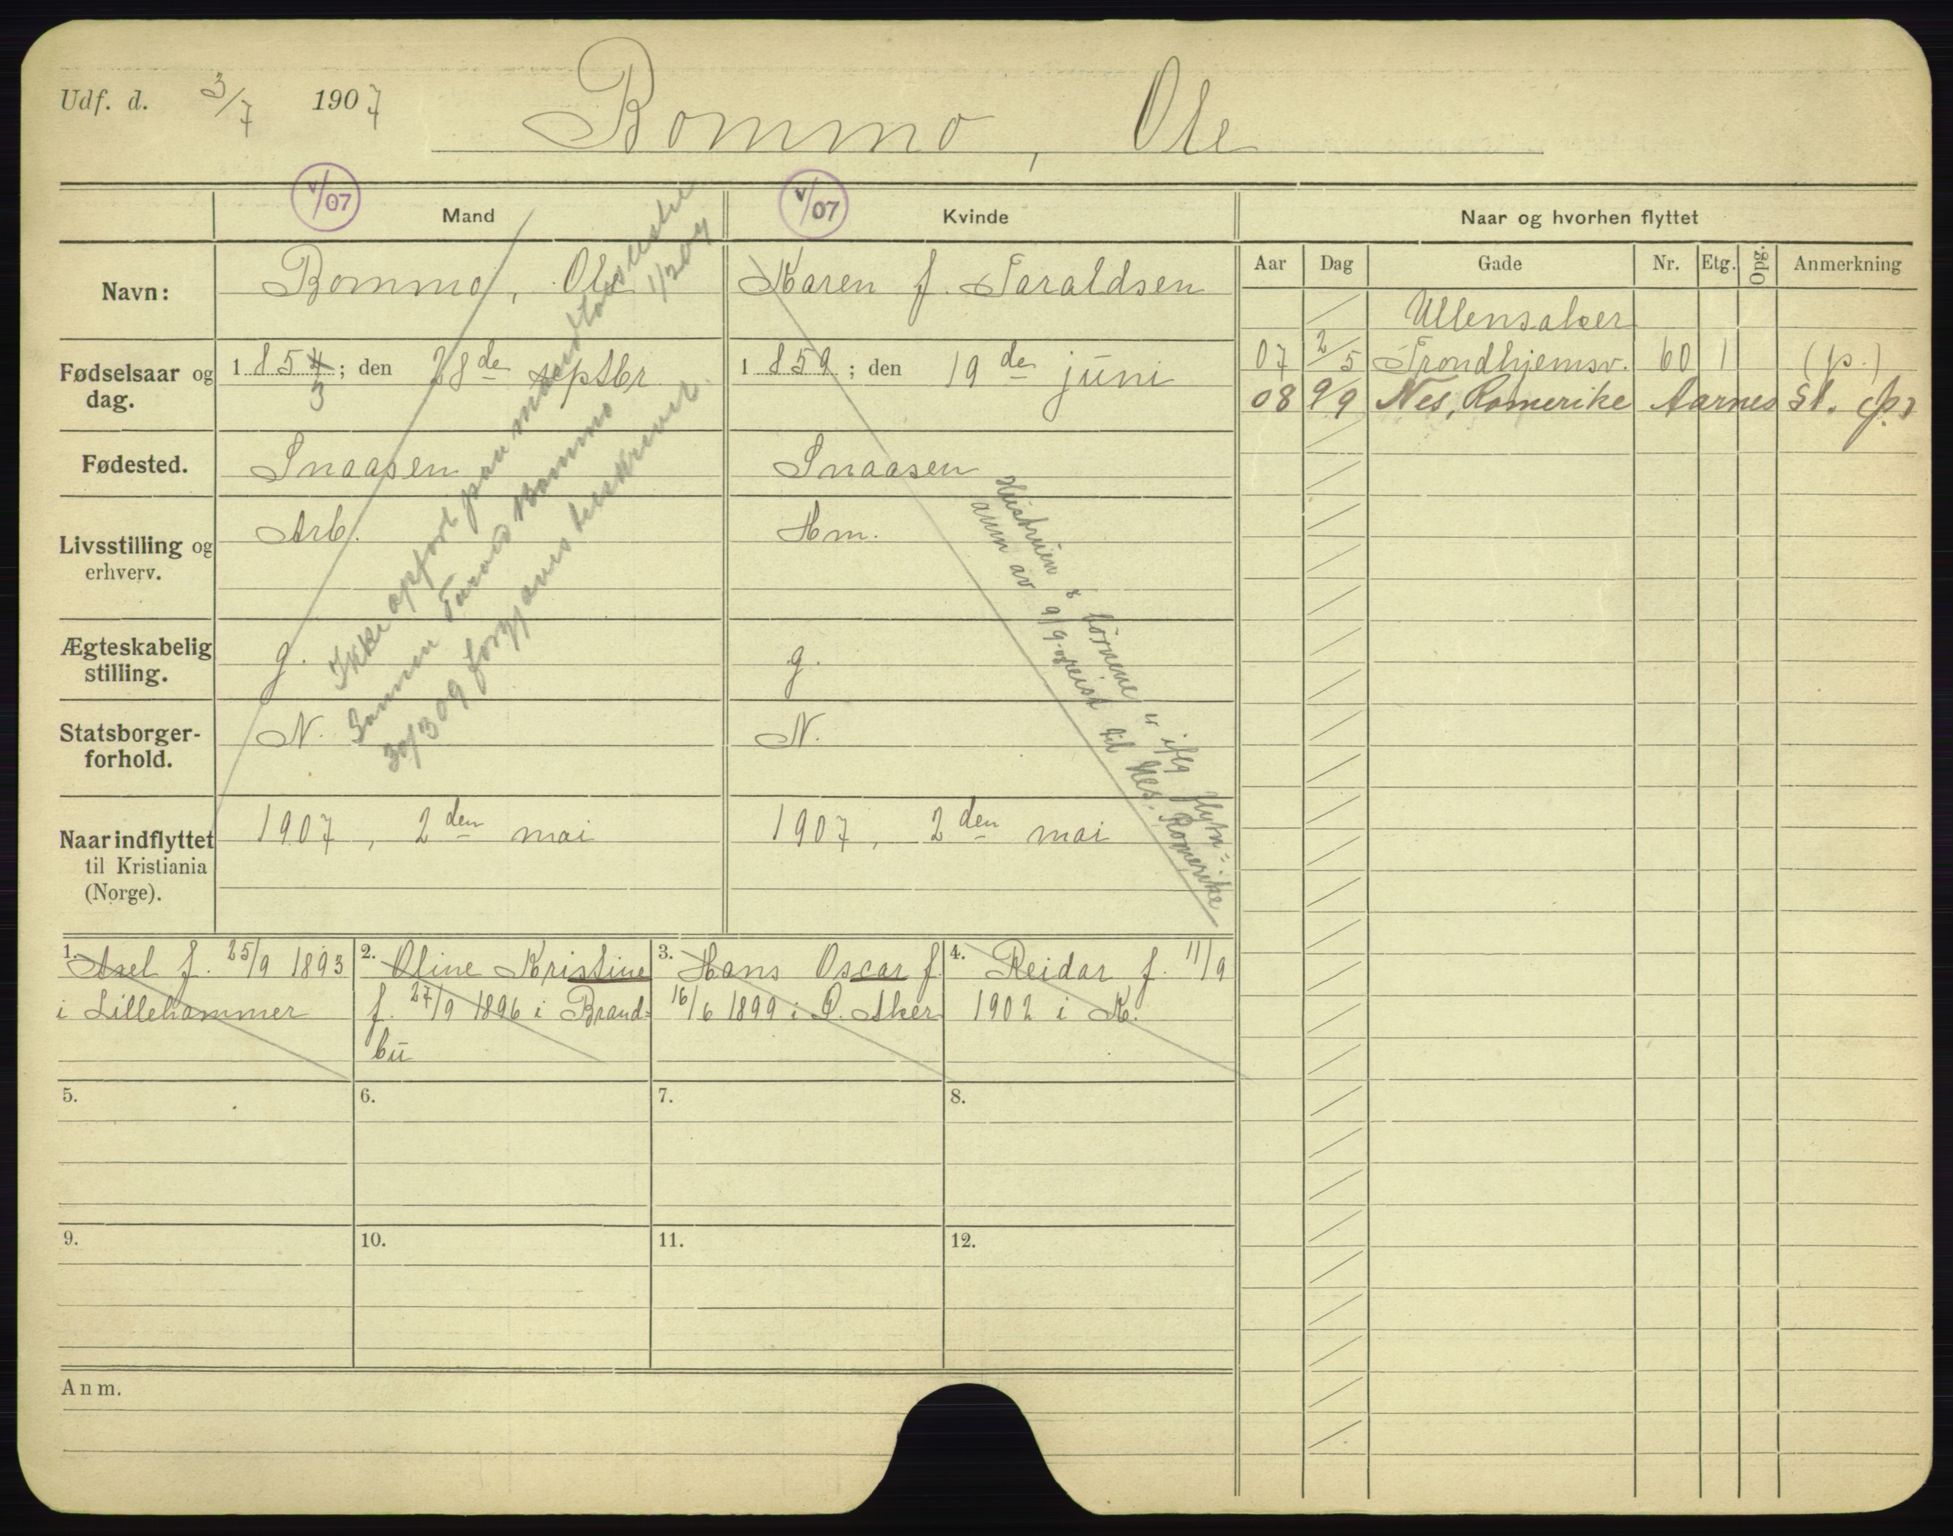 Udf. d. 3/7 1907
Bommo, Ole
V/07 V/07
Mand Kvinde Naar og hvorhen flyttet
Aar Dag Gade Nr. Etg. Opg. Anmerkning
Navn: Bommo, Ole Karen f. Taraldsen
Ullensaker
Fødselsaar og dag. 1854 3; den 28de septbr. 1859; den 19de juni
07 2/5 Trondhjemsv. 60 1 (p.)
08 9/9 Nes, Romerike Aarnes St. (p)
Fødested. Snaasen Snaasen
Livsstilling og erhverv. Arb. Hm.
Ægteskabelig stilling. g. g.
Statsborgerforhold. N. N.
Naar indflyttet til Kristiania (Norge). 1907, 2den mai 1907, 2den mai
Ikke opført paa mandtalsliste
1/2 09
Bommo
30/3 09
Hustruen & børnene er iflg flytn=
anm av 9/9 reist til Nes. Romerike
1. Axel f. 25/9 1893
i Lillehammer
2. Oline Kristine
f. 27/9 1896 i Brand=
bu
3. Hans Oscar f.
16/6 1899 i Ø. Aker
4. Reidar f. 11/9
1902 i K.
5. 6. 7. 8.
9. 10. 11. 12.
Anm.